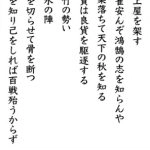 上屋を架す
雀安んぞ鴻鵠の志を知らんや
葉落ちて天下の秋を知る
貨は良貨を駆逐する
竹の勢い
水の陣
を切らせて骨を断つ
を知り己をしれば百戦殆うからず